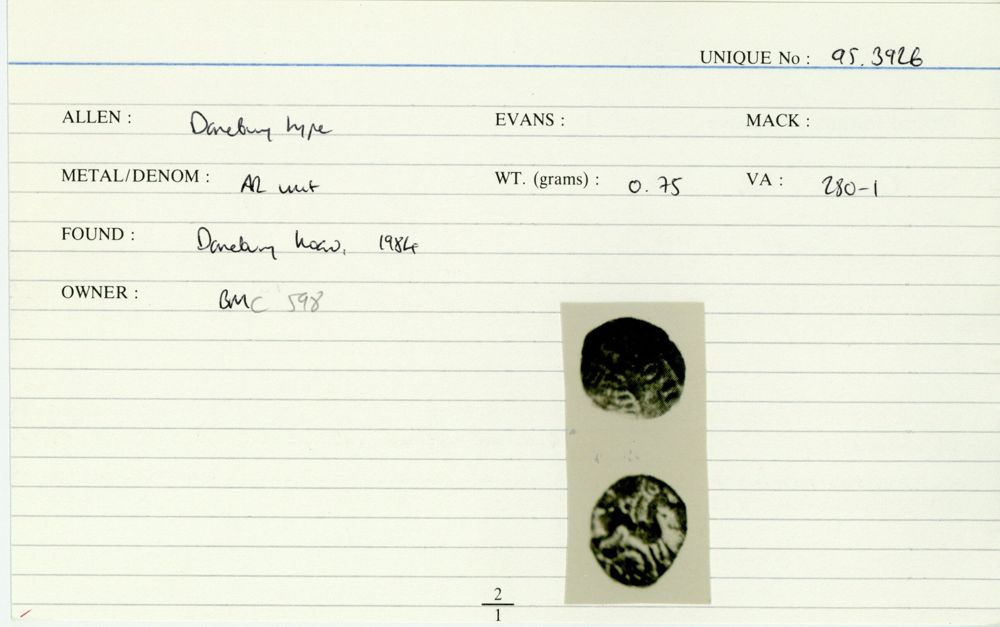 UNIQUE No : 95.3926
ALLEN : Danebury type EVANS : MACK :
METAL/DENOM : AR unit WT. (grams) : 0.75 VA : 280-1
FOUND : Danebury hoard, 1984
OWNER : BMC 598
2
1